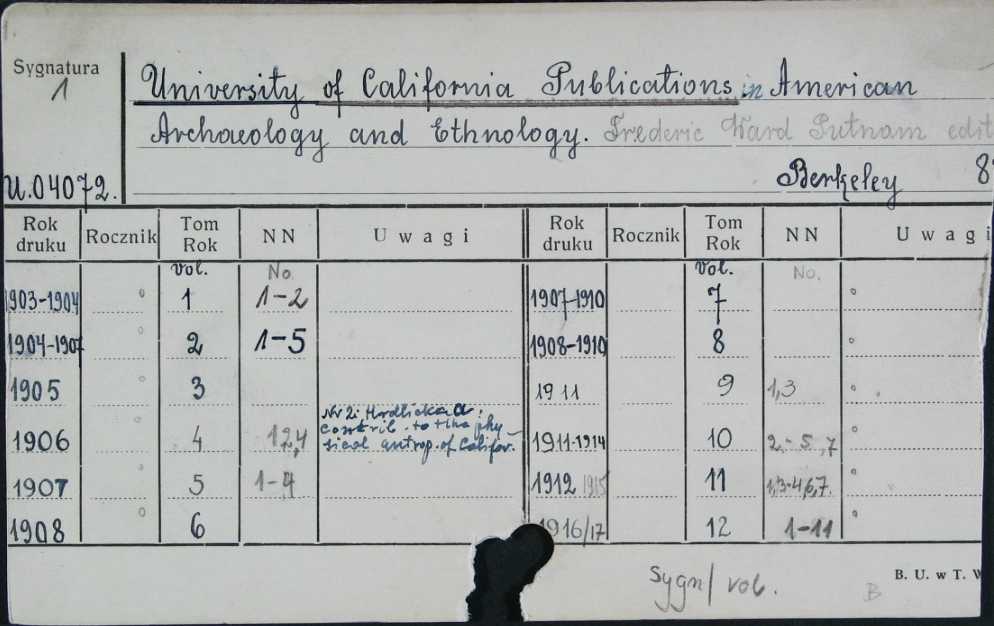 Sygnatura
1
University of California Publications in American
Archaeology and Ethnology. Frederic Ward Putnam edit
U.04072.
Berkeley 8°
Rok druku Rocznik Tom Rok NN Uwagi Rok druku Rocznik Tom Rok NN Uwagi
vol. No vol. No.
1903-1904 1 1-2 1907-1910 7
1904-1907 2 1-5 1908-1910 8
1905 3 1911 9 1,3
Nr 2: Hrdlicka A.
contrib. to the phy-
sical antrop. of Califor.
1906 4 12,4 1911-1914 10 2,-5,7
1907 5 1-4 1912 1915 11 1,3-4,6,7.
1908 6 1916/17 12 1-11
Sygn/ vol.
B
B. U. w T.